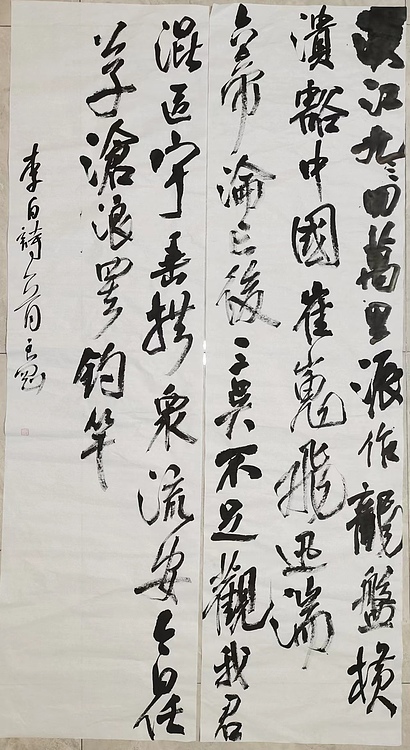 漢江九回萬里派作龍盤橫
潰豁中國崔嵬飛迅湍
六帝淪亡後三吳不足觀我君
混區宇垂拱衆流安今日任
公子滄浪罷釣竿
李白詩六月王